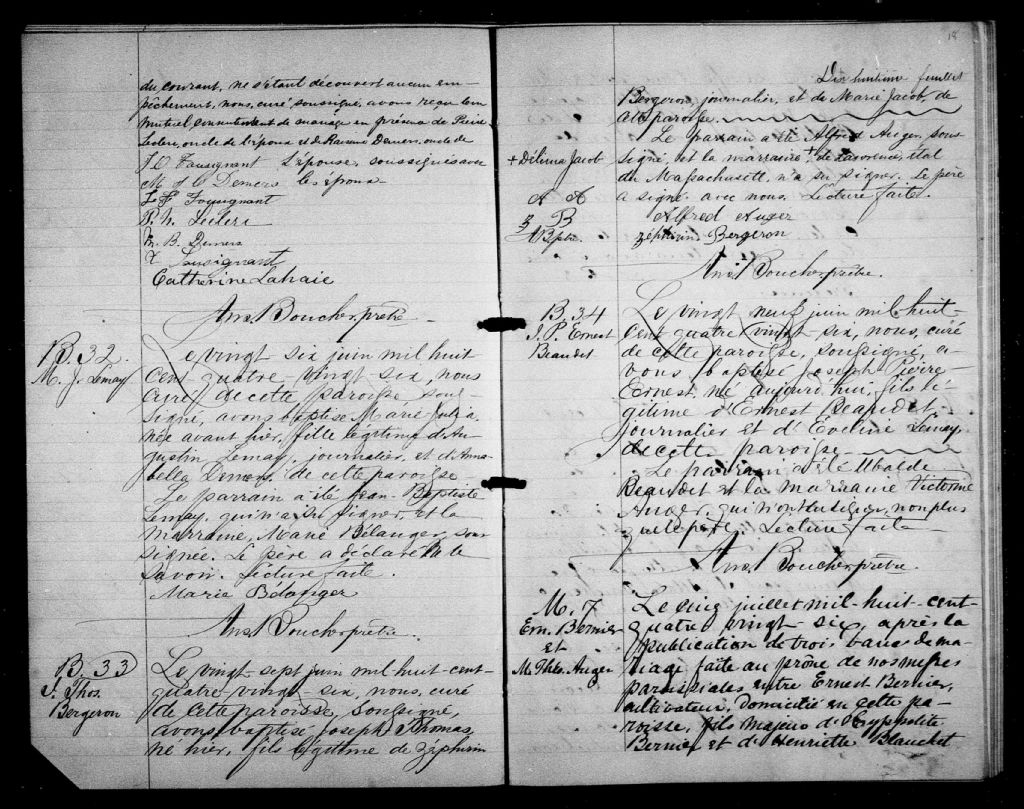 du courant, ne s'étant découvert aucun em-
pêchement, nous, curé, soussigné, avons reçu leur
mutuel consentement de mariage en présence de Pierre
Leclerc, oncle de l'épouse et de Demers, oncle de
L'épouse, soussignés avec
les époux
P. N. Leclerc
M. B. Demers
Tousignant
Catherine Lahaie
Ans. Boucher ptre
B. 32
M. J. Lemay
Le vingt-six juin mil huit
cent quatre-vingt-six, nous
curé de cette paroisse, sous-
signé, avons baptisé Marie Julia
née avant hier, fille légitime d'Au-
gustin Lemay, journalier, et d'Anna-
bella Demers, de cette paroisse
Le parrain a été Jean-Baptiste
Lemay, qui n'a su signer, et la
marraine, Marie Bélanger, sous-
signée. Le père a déclaré ne le
savoir. Lecture faite.
Marie Bélanger
Ans. Boucher ptre.
B. 33
J. Thos.
Bergeron
Le vingt-sept juin mil huit-cent-
quatre-vingt-six, nous, curé
de cette paroisse, soussigné,
avons baptisé Joseph Thomas,
né hier, fils légitime de Zéphirin
18
Dix huitième feuillet
Bergeron, journalier, et de Marie Jacob, de
cette paroisse.
Le parrain a été Alfred Auger, sous-
signé, et la marraine + de Lawrence, état
+ Délima Jacob
du Massachusett, n'a su signer. Le père
a signé avec nous. Lecture faite.
A A
Alfred Auger
Z B
Zéphirin Bergeron
A B ptre
Ans. Boucher ptre.
B. 34
J. P. Ernest
Beaudet
Le vingt-neuf juin mil huit-
cent quatre-vingt-six, nous, curé
de cette paroisse, soussigné, a-
vons baptisé Joseph Pierre-
Ernest, né aujourd'hui, fils lé-
gitime d'Ernest Beaudet,
journalier et d'Eveline Lemay,
de cette paroisse
Le parrain a été Ubalde
Beaudet et la marraine Victorine
Auger, qui n'ont su signer, non plus
que le père. Lecture faite
Ans. Boucher ptre
M. 7
Ern. Bernier
et
M. Auger
Le cinq juillet mil-huit-cent-
quatre-vingt-six, après la
publication de trois bans de ma-
riage faite au prône de nos messes
paroissiales entre Ernest Bernier,
cultivateur, domicilié en cette pa-
roisse, fils majeur d'Hyppolite
Bernier et d'Henriette Blanchet